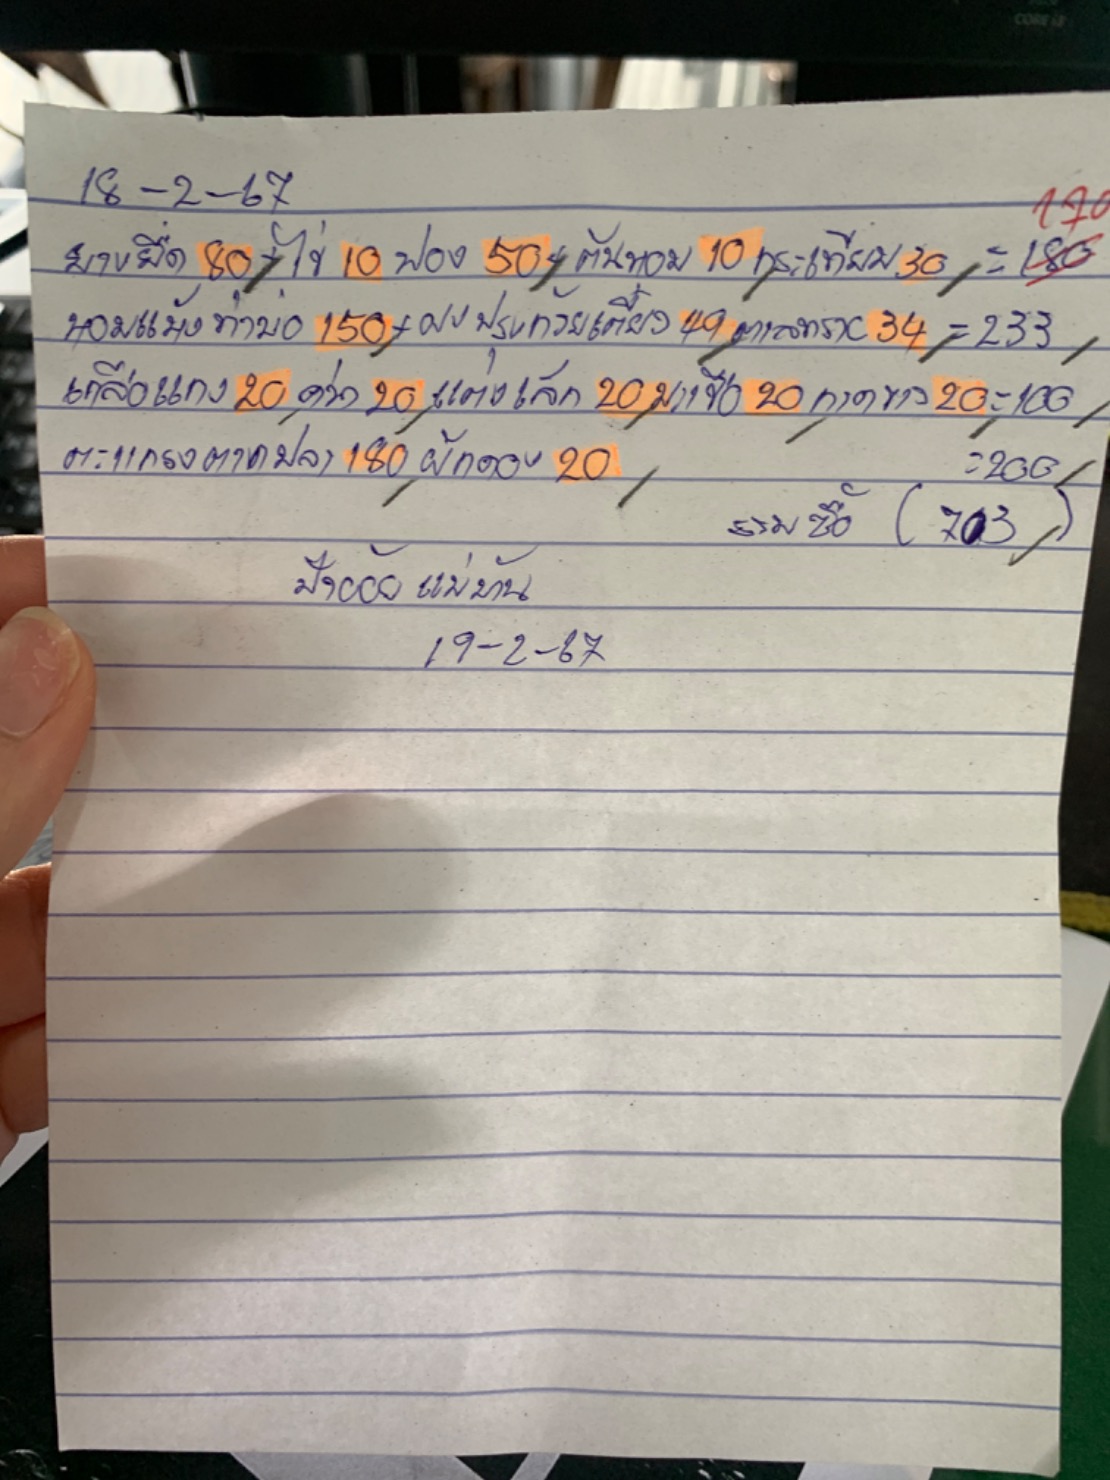 CORE i3
18-2-67
170
ยางยืด 80 + ไข่ 10 ฟอง 50 + ต้นหอม 10 กระเทียม 30 = 180
หอมแม้งท่าบ่อ 150 + ผงปรุงก๋วยเตี๋ยว 49 ตาลทราย 34 = 233
เกลือแกง 20 ข่า 20 แตงเล็ก 20 มะเขือ 20 กาดขาว 20 = 100
ตะแกรงตากปลา 180 ผักดอง 20 = 200
รวมซื้อ (703)
ป้าอ้อย แม่บ้าน
19-2-67